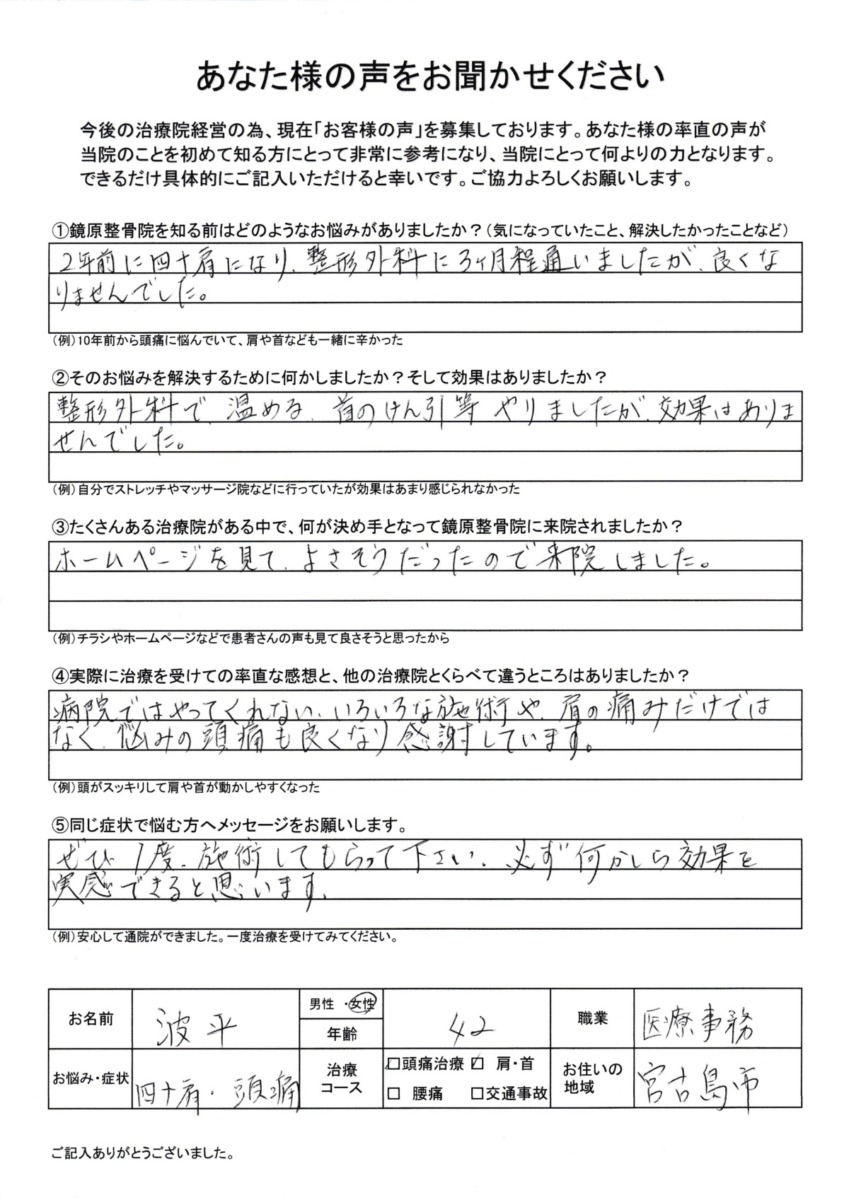 あなた様の声をお聞かせください
今後の治療院経営の為、現在「お客様の声」を募集しております。あなた様の率直の声が
当院のことを初めて知る方にとって非常に参考になり、当院にとって何よりの力となります。
できるだけ具体的にご記入いただけると幸いです。ご協力よろしくお願いします。
①鏡原整骨院を知る前はどのようなお悩みがありましたか？（気になっていたこと、解決したかったことなど）
2年前に四十肩になり、整形外科に3ヶ月程通いましたが、良くな
りませんでした。
（例）10年前から頭痛に悩んでいて、肩や首なども一緒に辛かった
②そのお悩みを解決するために何かしましたか？そして効果はありましたか？
整形外科で、温める、首のけん引等やりましたが、効果はありま
せんでした。
（例）自分でストレッチやマッサージ院などに行っていたが効果はあまり感じられなかった
③たくさんある治療院がある中で、何が決め手となって鏡原整骨院に来院されましたか？
ホームページを見て、よさそうだったので来院しました。
（例）チラシやホームページなどで患者さんの声も見て良さそうと思ったから
④実際に治療を受けての率直な感想と、他の治療院とくらべて違うところはありましたか？
病院ではやってくれない、いろいろな施術や、肩の痛みだけでは
なく、悩みの頭痛も良くなり感謝しています。
（例）頭がスッキリして肩や首が動かしやすくなった
⑤同じ症状で悩む方へメッセージをお願いします。
ぜひ1度、施術してもらって下さい、必ず何かしら効果を
実感できると思います、
（例）安心して通院ができました。一度治療を受けてみてください。
お名前 波平 男性・女性 年齢 42 職業 医療事務
お悩み・症状 四十肩・頭痛 治療コース ☑頭痛治療 ☑肩・首 □腰痛 □交通事故 お住いの地域 宮古島市
ご記入ありがとうございました。